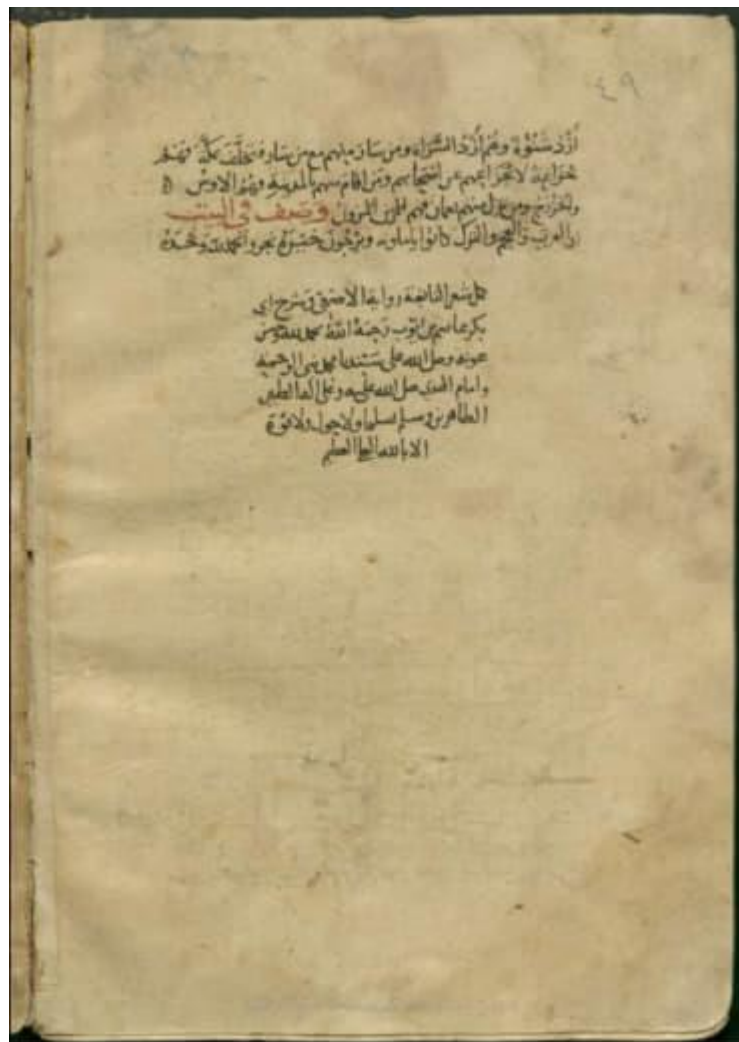 ٤٩
أزد شنوءة وهم أزد السراة ومن سار منهم مع من سار فتخلف بمكة فهم
خزاعة لانخزاعهم عن أصحابهم ومن أقام منهم بالمدينة فهم الاوس
والخزرج ومن نزل منهم بعمان فهم المزون وصف في البيت
ان العرب والعجم والترك كانوا ويرجون
كمل شعر النابغة رواية الاصمعي وشرح ابي
بكر عاصم بن ايوب رحمه الله بحمد الله وحسن
عونه وصلى الله على سيدنا محمد نبي الرحمة
وامام الهدى صلى الله عليه وعلى اله الطيبين
الطاهرين وسلم تسليما ولا حول ولا قوة
الا بالله العلي العظيم